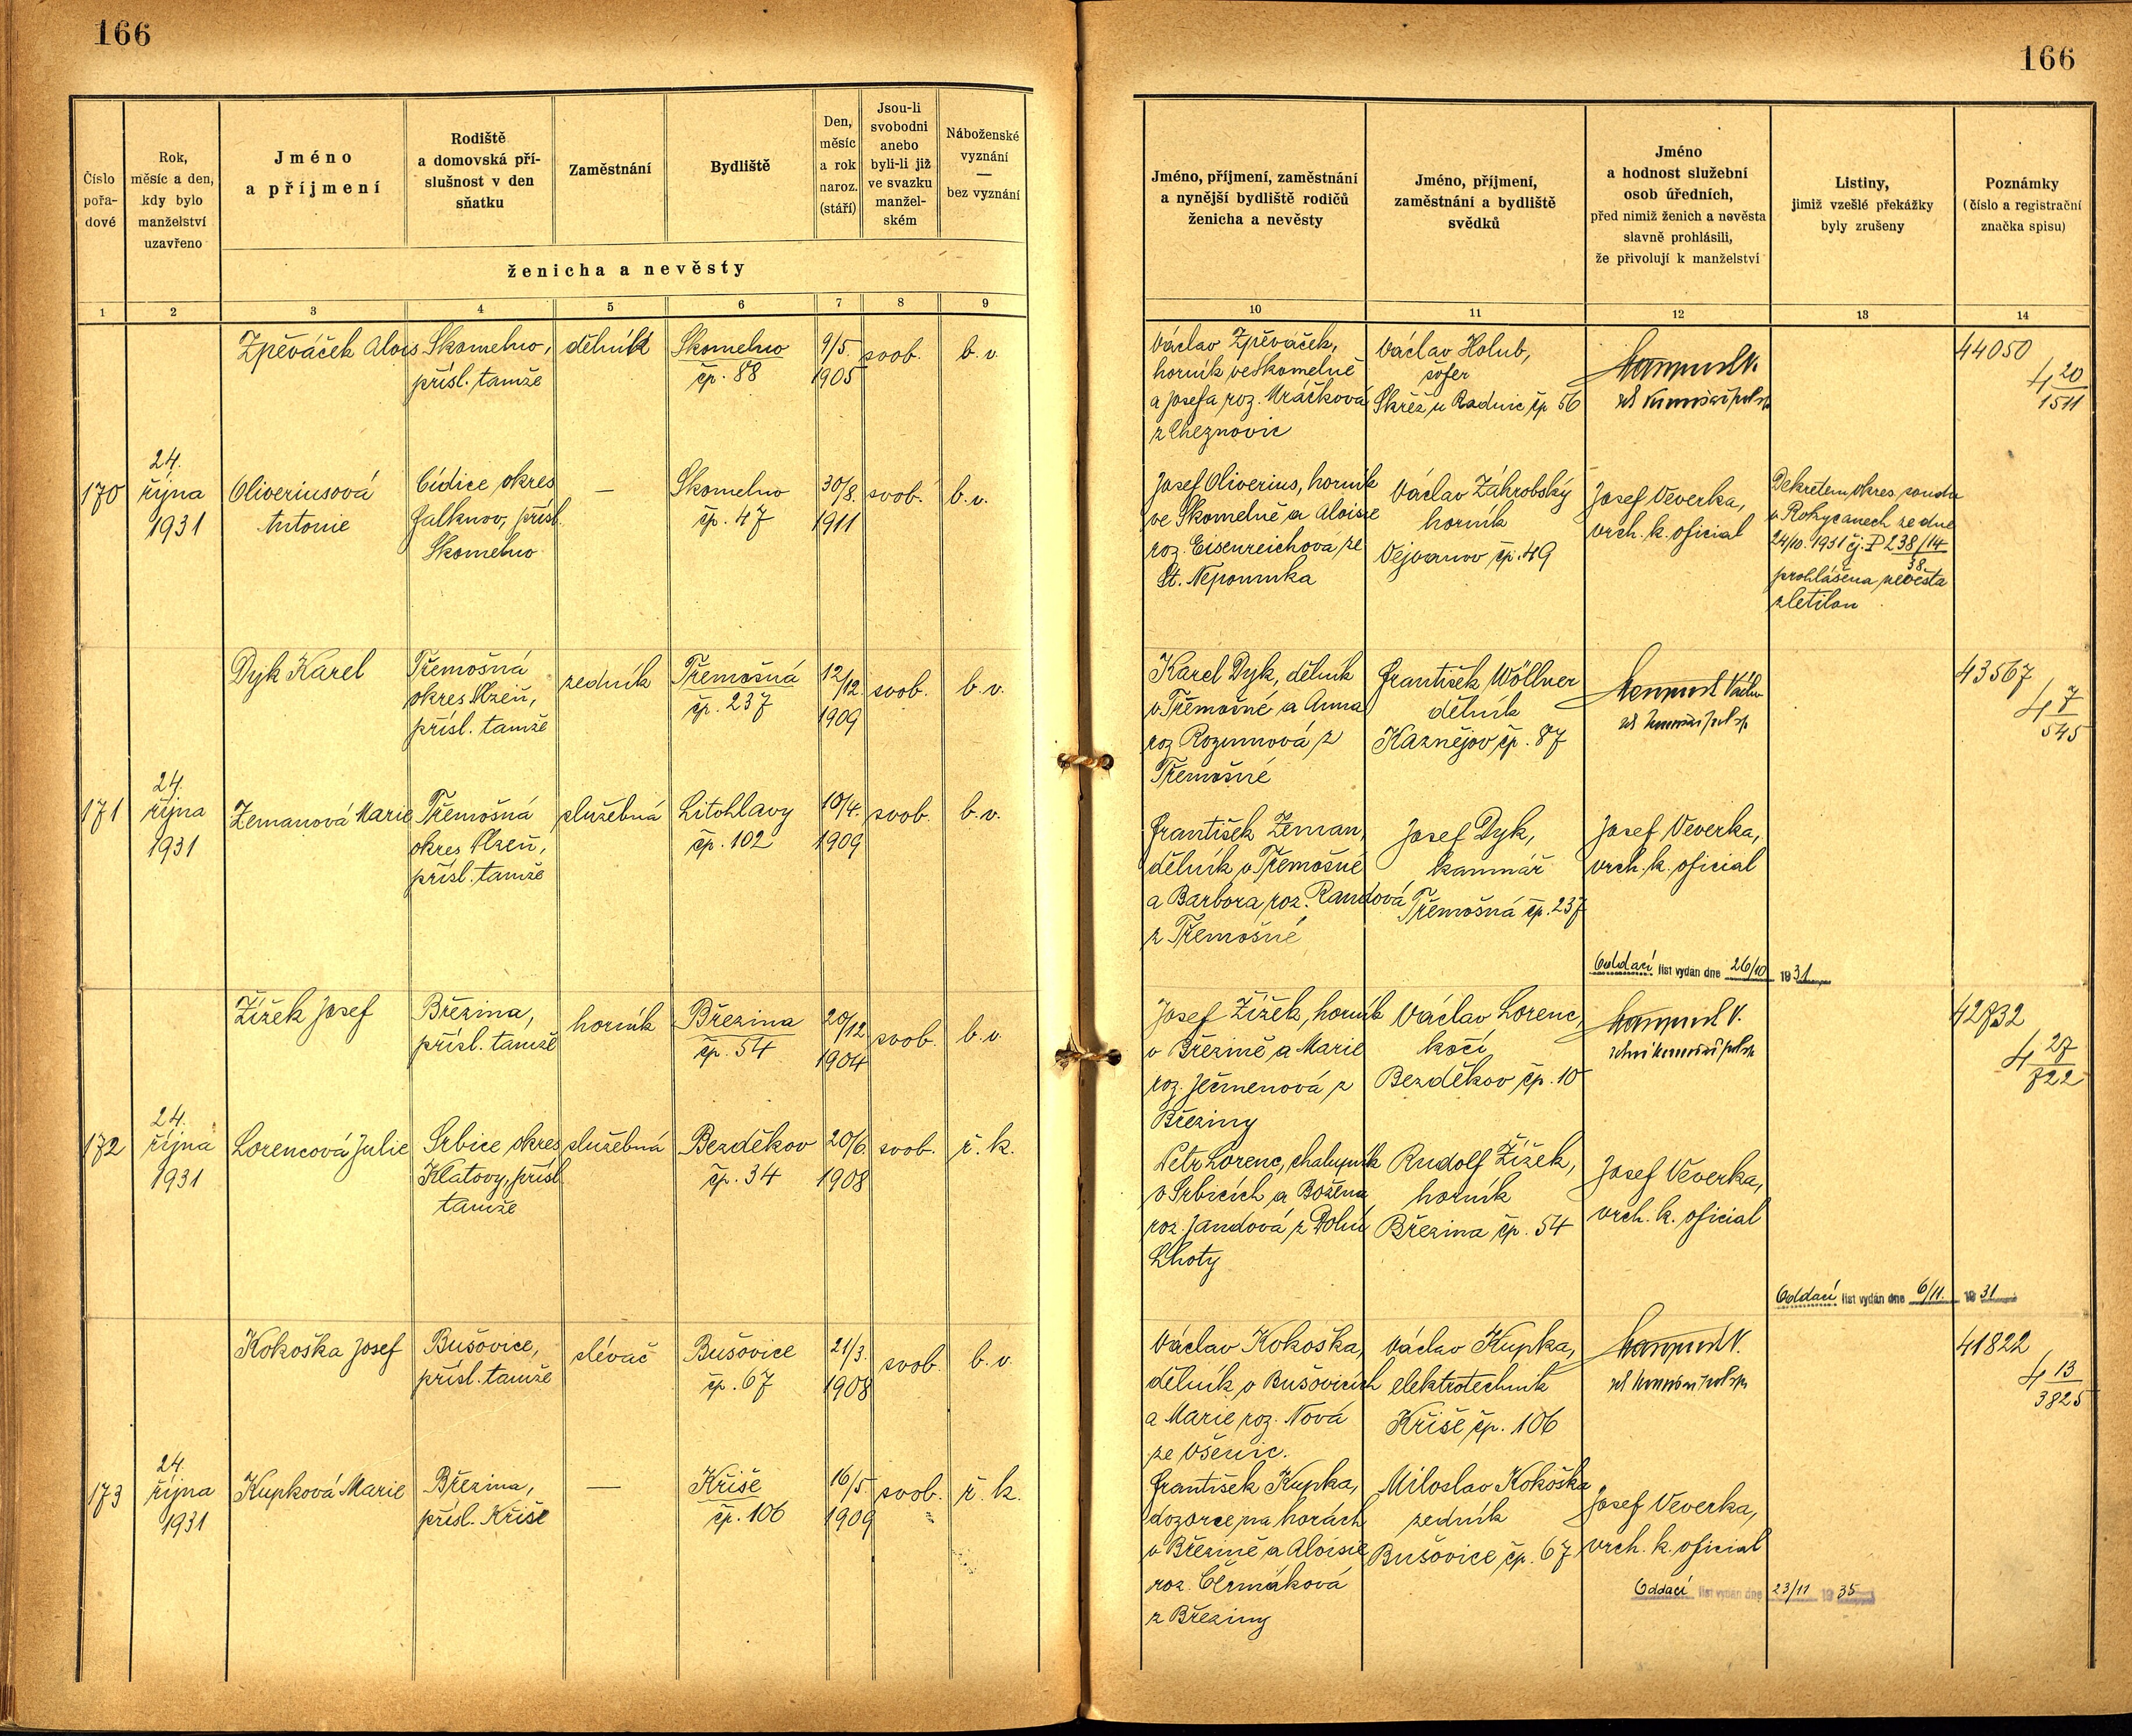 166
166
Číslo
pořa-
dové
Rok,
měsíc a den,
kdy bylo
manželství
uzavřeno
Jméno
a příjmení
Rodiště
a domovská pří-
slušnost v den
sňatku
Zaměstnání
Bydliště
Den,
měsíc
a rok
naroz.
(stáří)
Jsou-li
svobodni
anebo
byli-li již
ve svazku
manžel-
ském
Náboženské
vyznání
—
bez vyznání
ženicha a nevěsty
1 2 3 4 5 6 7 8 9
Jméno, příjmení, zaměstnání
a nynější bydliště rodičů
ženicha a nevěsty
Jméno, příjmení,
zaměstnání a bydliště
svědků
Jméno
a hodnost služební
osob úředních,
před nimiž ženich a nevěsta
slavně prohlásili,
že přivolují k manželství
Listiny,
jimiž vzešlé překážky
byly zrušeny
Poznámky
(číslo a registrační
značka spisu)
10 11 12 13 14
Zpěváček Alois
Skomelno,
přísl. tamže
dělník
Skomelno
čp. 88
9/5.
1905
svob.
b. v.
Václav Zpěváček,
horník ve Skomelně
a Josefa roz. Uráčková
z Cheznovic
Václav Holub,
šofer
Skřéž u Radnic čp 56
44050
4 20
1511
170
24.
října
1931
Oliveriusová
Antonie
Cídice okres
Falknov, přísl.
Skomelno
—
Skomelno
čp. 47
30/8.
1911
svob.
b. v.
Josef Oliverius, horník
ve Skomelně a Aloisie
roz. Eisenreichová ze
St. Nepomuka
Václav Zákrobský
horník
Vejvanov čp. 49
Josef Veverka,
vrch. k. oficial
Dekretem okres. soudu
v Rokycanech ze dne
24/10. 1931 čj. P 238/14
38.
prohlášena nevěsta
zletilou
Dyk Karel
Třemošná
okres Plzeň,
přísl. tamže
zedník
Třemošná
čp. 237
12/12.
1909
svob.
b. v.
Karel Dyk, dělník
v Třemošné a Anna
roz Rozumová z
Třemošné
František Wöllner
dělník
Kaznějov čp. 87
43567
4 7
545
171
24.
října
1931
Zemanová Marie
Třemošná
okres Plzeň,
přísl. tamže
služebná
Litohlavy
čp. 102
10/4.
1909
svob.
b. v.
František Zeman,
dělník v Třemošné
a Barbora roz. Randová
z Třemošné
Josef Dyk,
kamnář
Třemošná čp. 237
Josef Veverka,
vrch. k. oficial
Oddací list vydán dne 26/10 1931
Žížek Josef
Březina,
přísl. tamže
horník
Březina
čp. 54
20/12
1904
svob.
b. v.
Josef Žížek, horník
v Březině a Marie
roz. Ječmenová z
Březiny
Václav Lorenc,
kočí
Bezděkov čp. 10
42832
4 27
822
172
24.
října
1931
Lorencová Julie
Srbice okres
Klatovy, přísl.
tamže
služebná
Bezděkov
čp. 34
20/6.
1908
svob.
ř. k.
Petr Lorenc, chalupník
v Srbicích a Božena
roz. Jandová z Dolní
Lhoty
Rudolf Žížek,
horník
Březina čp. 54
Josef Veverka,
vrch. k. oficial
Oddací list vydán dne 6/11. 1931
Kokoška Josef
Bušovice,
přísl. tamže
slévač
Bušovice
čp. 67
21/3.
1908
svob.
b. v.
Václav Kokoška,
dělník v Bušovicích
a Marie roz. Nová
ze Všenic.
Václav Kupka,
elektrotechnik
Kříše čp. 106
41822
4 13
3825
173
24.
října
1931
Kupková Marie
Březina,
přísl. Kříše
—
Kříše
čp. 106
16/5
1909
svob.
ř. k.
František Kupka,
dozorce na horách
v Březině a Aloisie
roz. Čermáková
z Březiny
Miloslav Kokoška
zedník
Bušovice čp. 67
Josef Veverka,
vrch. k. oficial
Oddací list vydán dne 23/11 1935